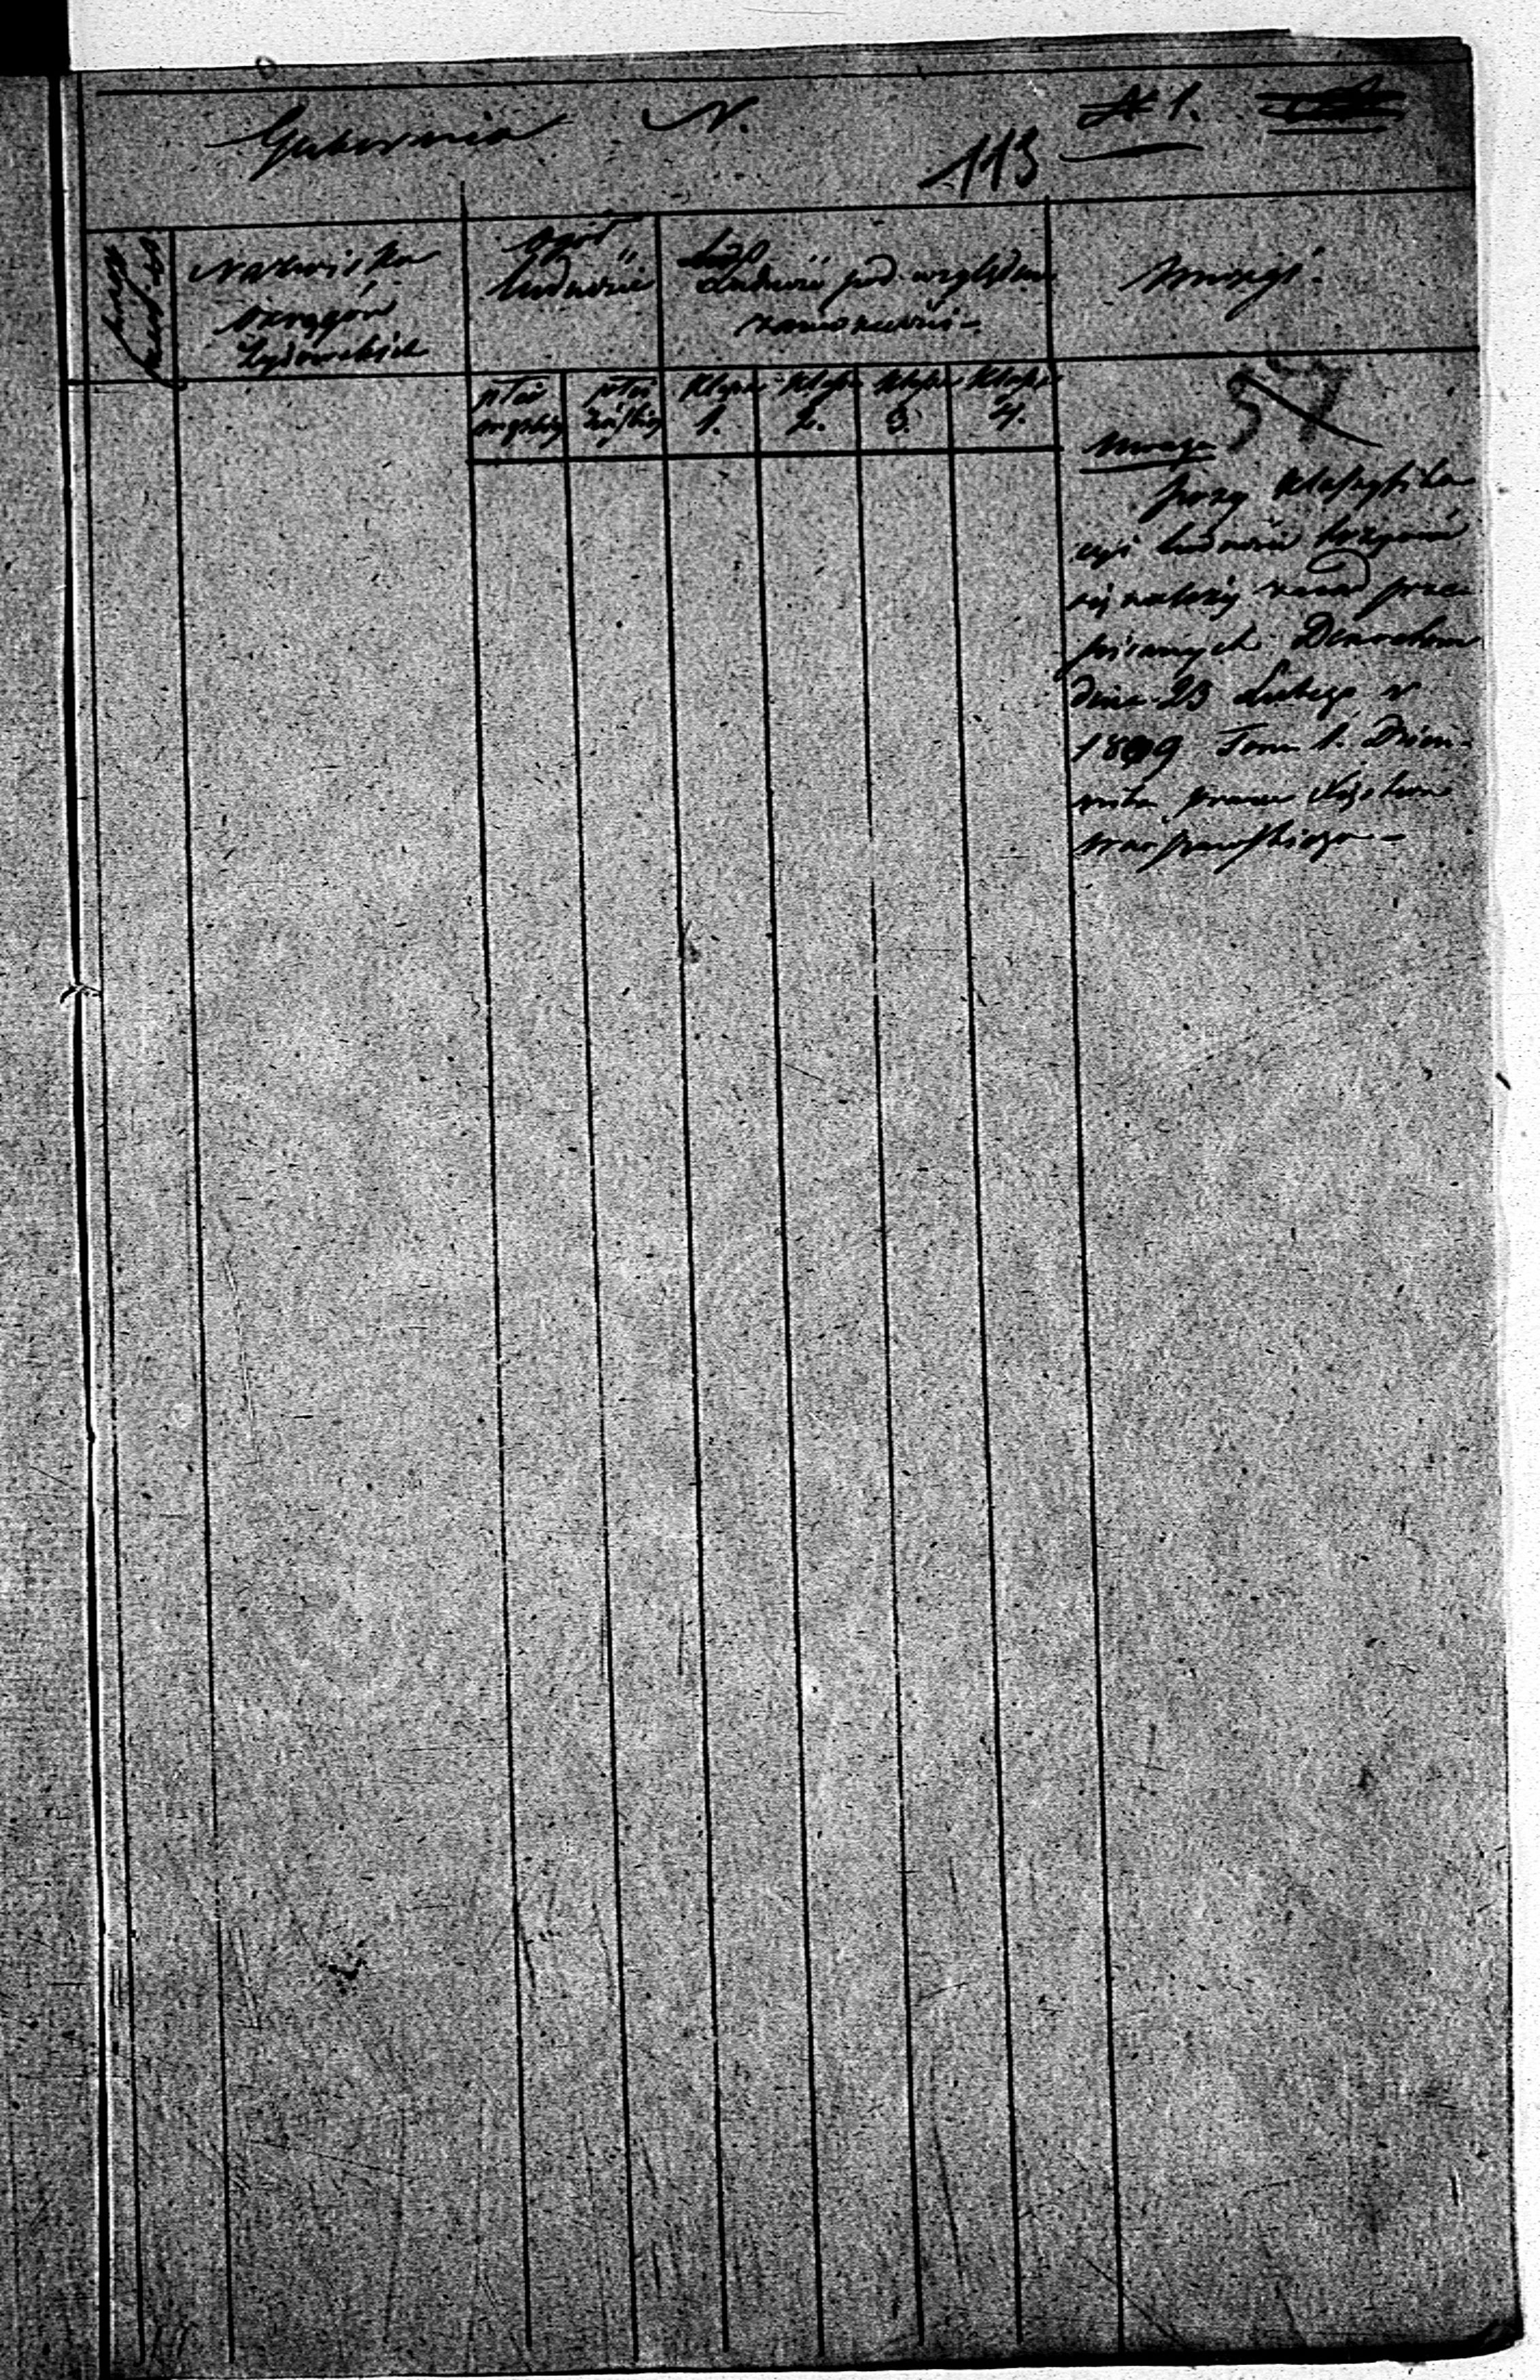 Gubernia N.
113
№ 1.
Nazwiska
okręgów
żydowskich
ogół
ludności
Ludności pod względem
zamożności -
Uwagi.
płci
męzkiéj
płci
żeńskiéj
Klassa
1.
Klassa
2.
Klassa
3.
Klassa
4.
57
Uwaga
przy Klassyfika
cyi ludności trzymać
się należy zasad prze
pisanych Dekretem
dnia 23 Lutego r
1809 Tom 1. Dzien-
nika praw Xięstwa
Warszawskiego -